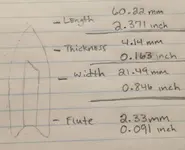 - Length 60.22 mm
2.371 inch
- Thickness 4.14 mm
0.163 inch
- Width 21.49 mm
0.846 inch
- Flute 2.33 mm
0.091 inch